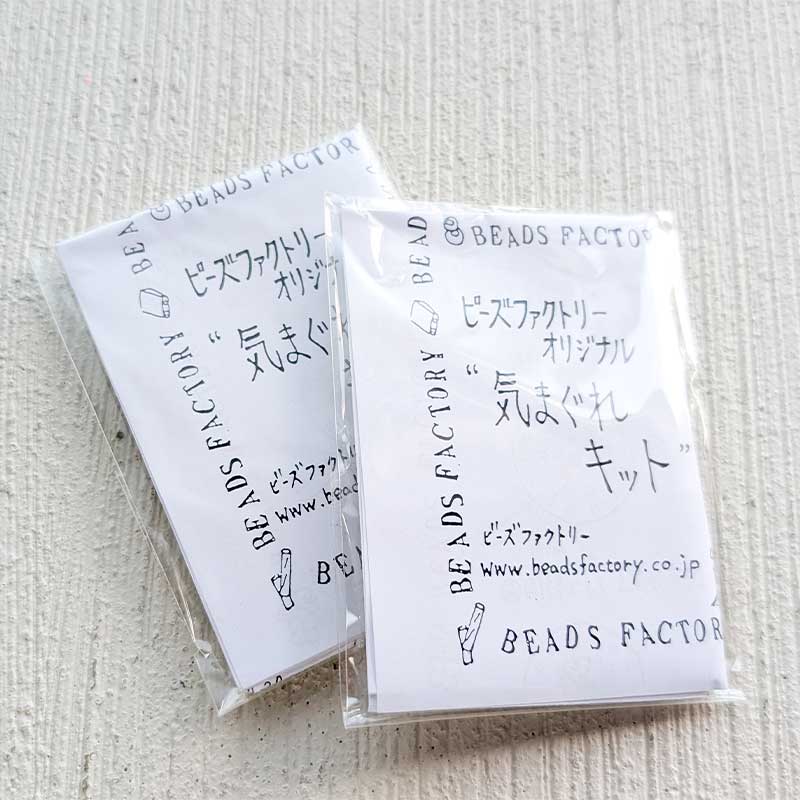 BEADS FACTOR
BEA
BEADS FACTORY
ビーズファクトリー
オリジナ
“気まぐ
ビーズファクトリー
www.bead
BEA
BEADS FACTORY
BEAD
BEADS FACTORY
ビーズファクトリー
オリジナル
“気まぐれ
キット”
ビーズファクトリー
www.beadsfactory.co.jp
BEADS FACTOR